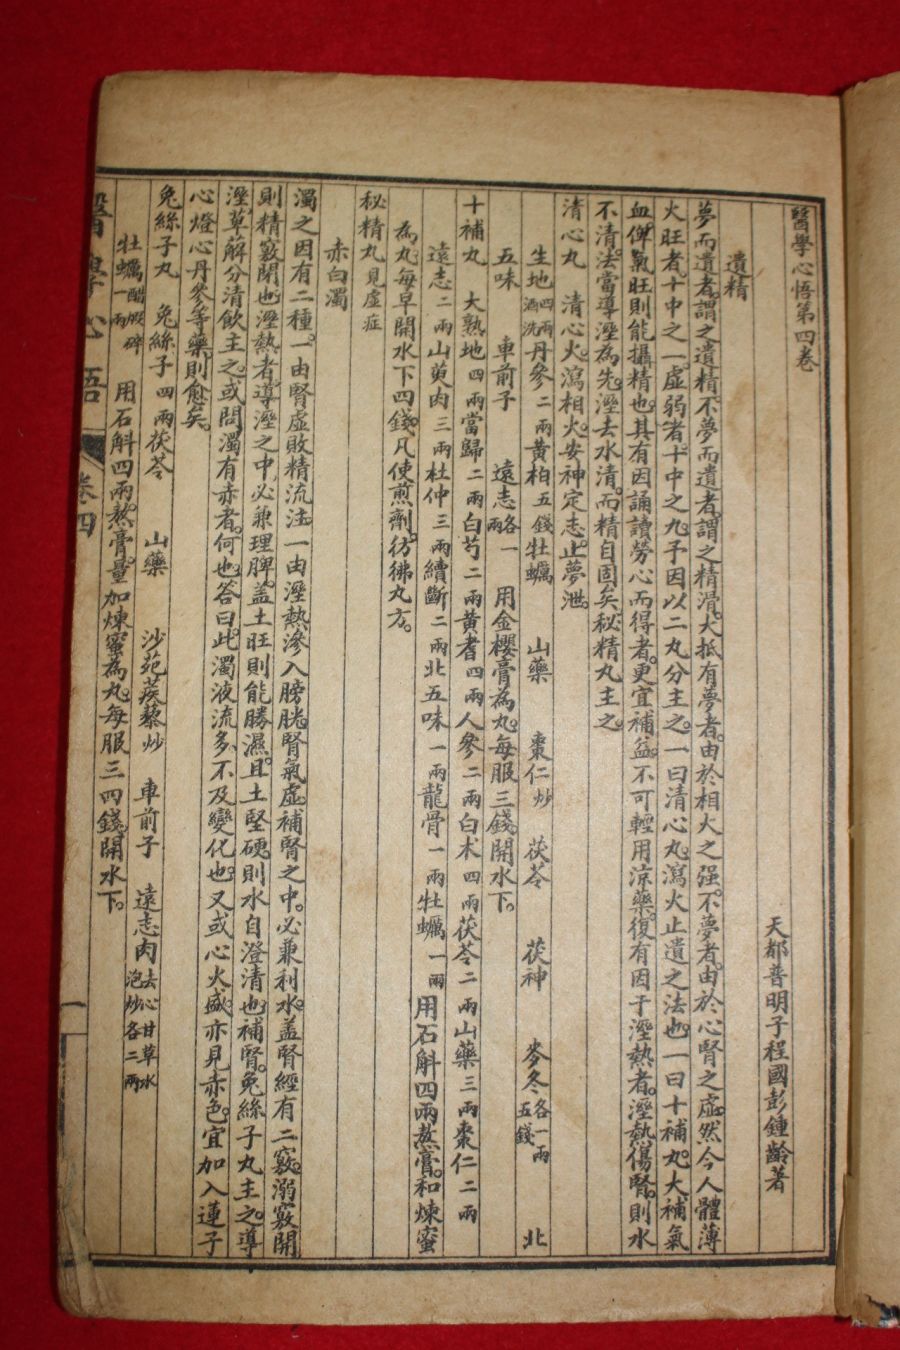 醫學心悟第四卷
天都普明子程國彭鍾齡著
遺精
夢而遺者。謂之遺精。不夢而遺者。謂之精滑。大抵有夢者。由於相火之强。不夢者。由於心腎之虛。然今人體薄
火旺者。十中之一。虛弱者。十中之九。予因以二丸分主之。一曰清心丸。瀉火止遺之法也。一曰十補丸。大補氣
血。俾氣旺則能攝精也。其有因誦讀勞心而得者。更宜補益。不可輕用涼藥。復有因于溼熱者。溼熱傷腎。則水
不清。法當導溼為先。溼去水清。而精自固矣。秘精丸主之。
清心丸　清心火。瀉相火。安神定志。止夢泄。
生地四兩酒洗丹參二兩黃柏五錢牡蠣　山藥　棗仁炒　茯苓　茯神　麥冬各一兩五錢　北
五味　車前子　遠志各一兩　用金櫻膏為丸。每服三錢。開水下。
十補丸　大熟地四兩當歸二兩白芍二兩黃耆四兩人參二兩白朮四兩茯苓二兩山藥三兩棗仁二兩
遠志二兩山萸肉三兩杜仲三兩續斷二兩北五味一兩龍骨一兩牡蠣一兩用石斛四兩熬膏。和煉蜜
為丸。每早開水下四錢。凡使煎劑。彷彿丸方。
秘精丸見虛症
赤白濁
濁之因有二種。一由腎虛敗精流注。一由溼熱滲入膀胱。腎氣虛。補腎之中。必兼利水。蓋腎經有二竅。溺竅開
則精竅閉也。溼熱者。導溼之中。必兼理脾。蓋土旺則能勝濕。且土堅硬。則水自澄清也。補腎。兔絲子丸主之。導
溼。萆薢分清飲主之。或問濁有赤者。何也。答曰。此濁液流多。不及變化也。又或心火盛。亦見赤色。宜加入蓮子
心燈心丹參等藥。則愈矣。
兔絲子丸　兔絲子四兩茯苓　山藥　沙苑蒺藜炒　車前子　遠志肉去心甘草水泡炒各二兩
牡蠣一兩醋煅碎　用石斛四兩。熬膏。量加煉蜜為丸。每服三四錢。開水下。
醫學心悟
卷四
一